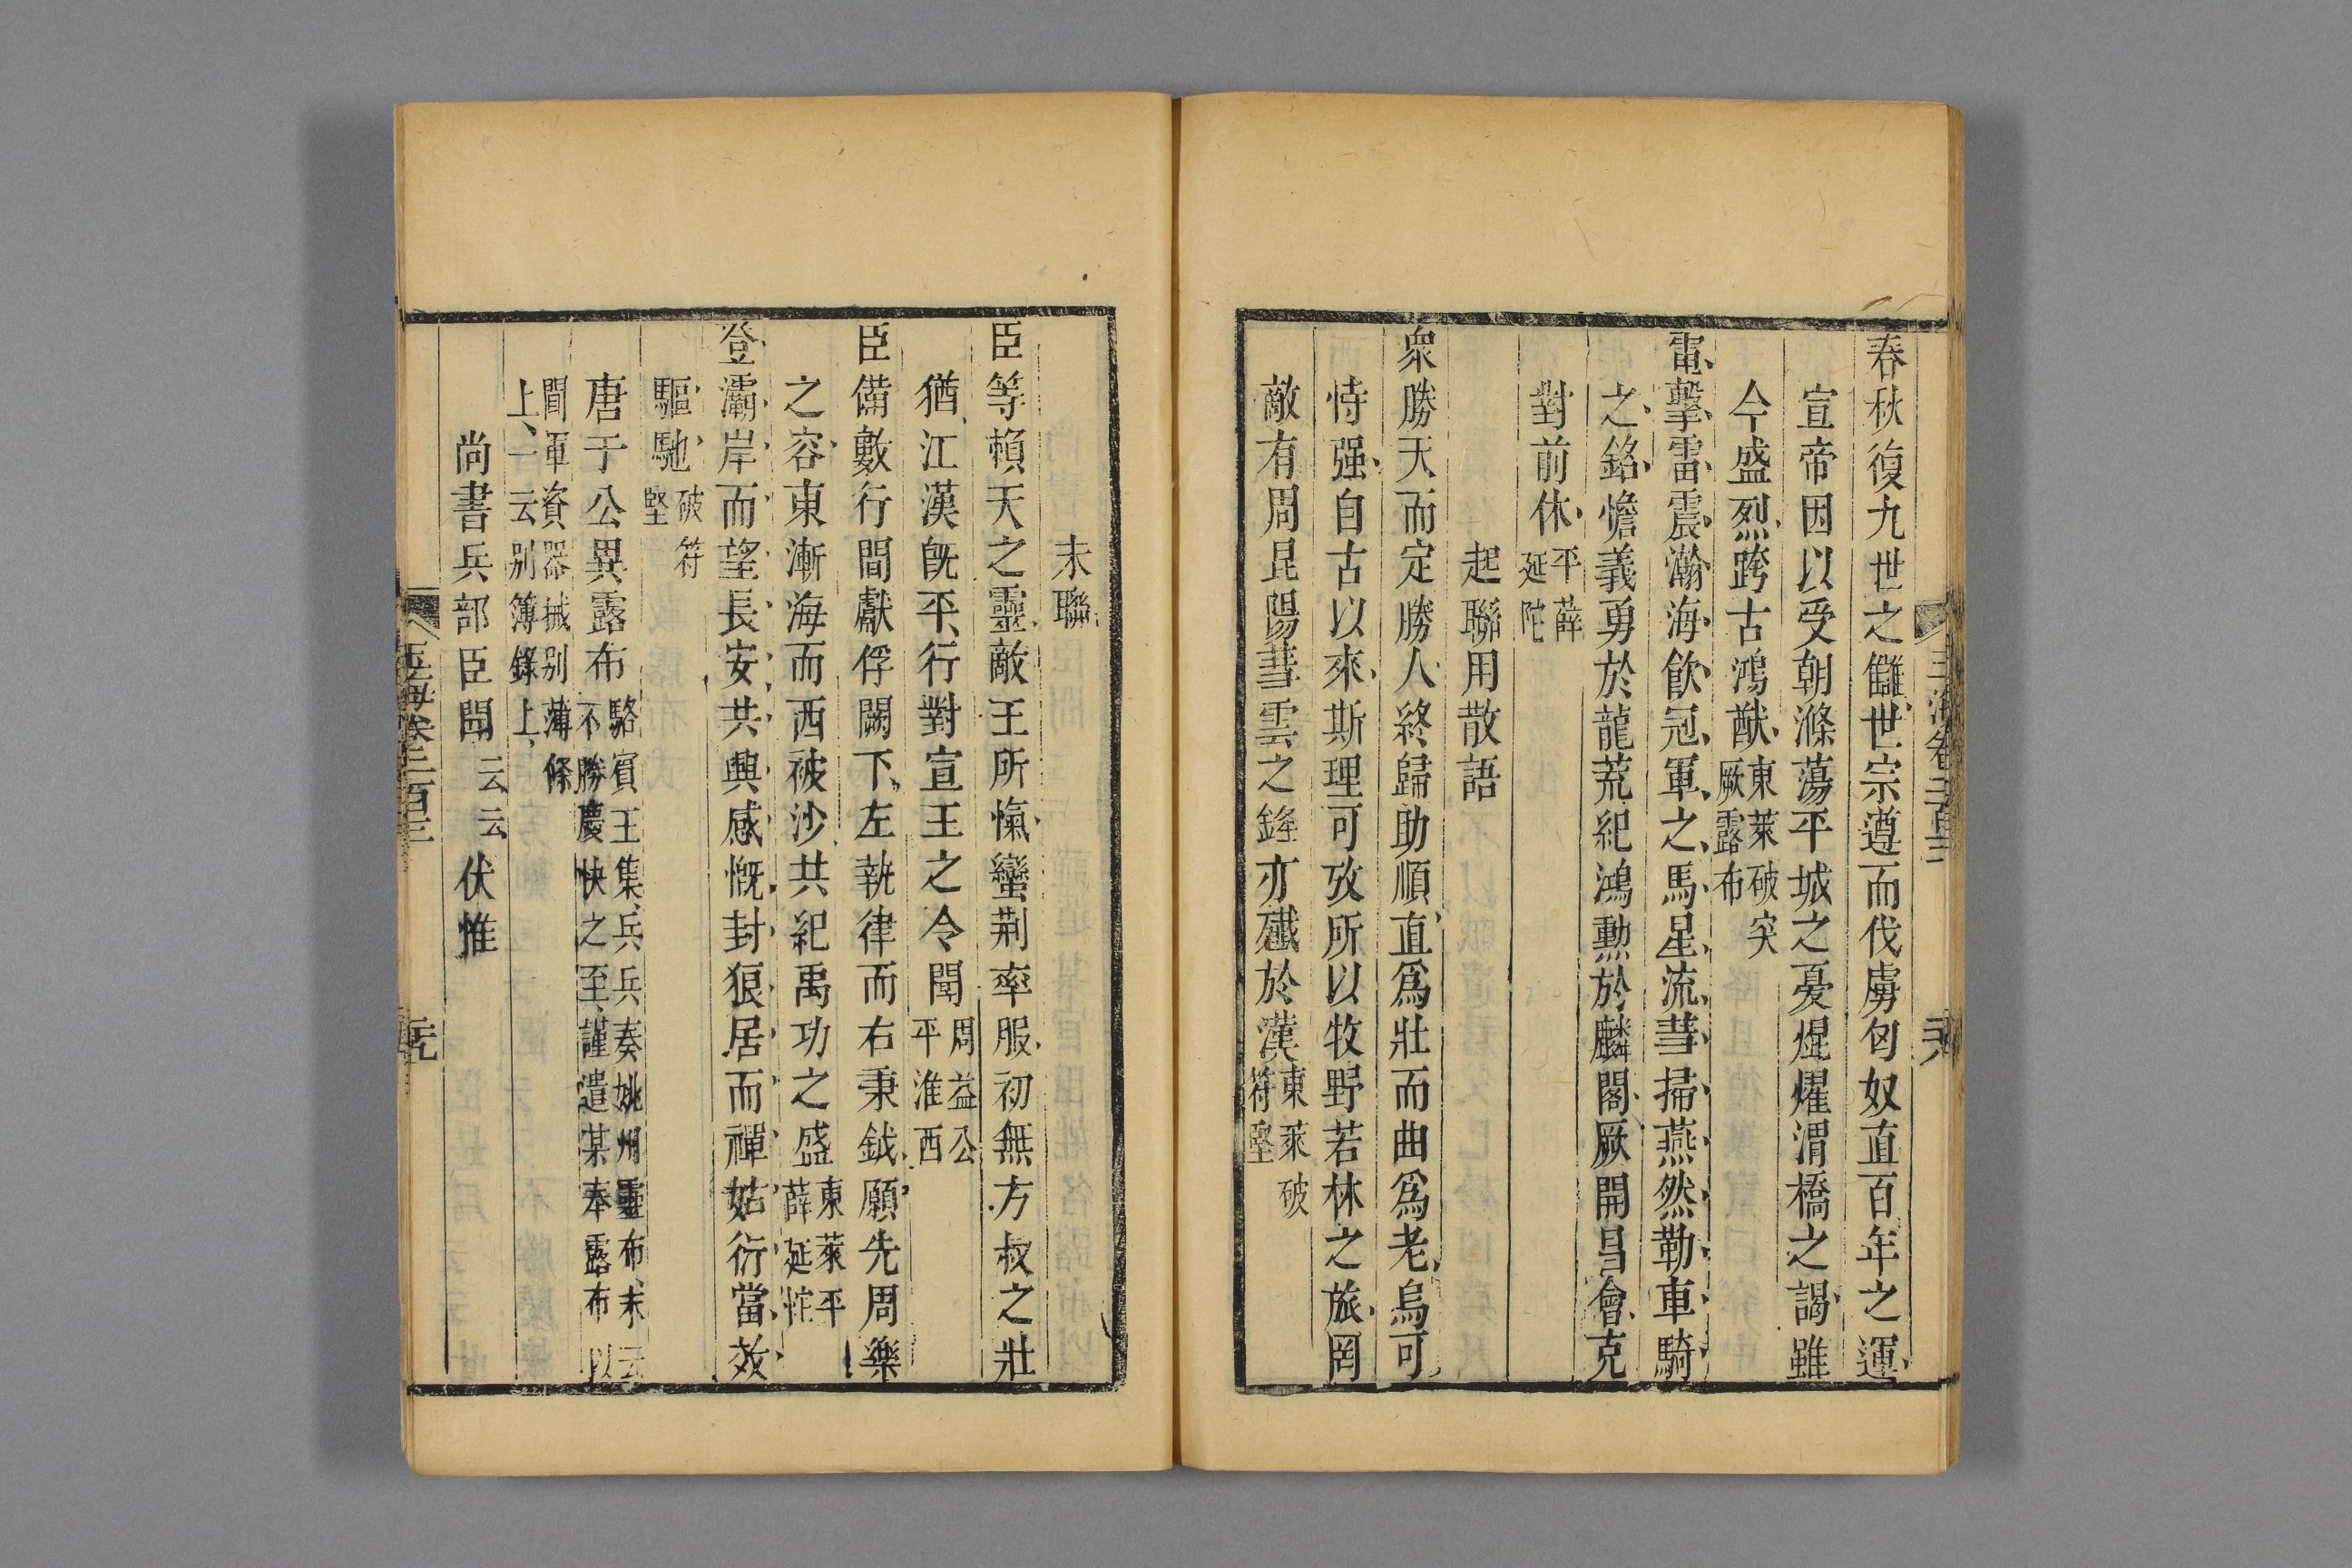 春秋復九世之讎世宗遵而伐虜匈奴直百年之運
宣帝因以受朝滌蕩平城之憂焜燿渭橋之謁雖
今盛烈跨古鴻猷東萊破突厥露布
電擊雷震瀚海飲冠軍之馬星流彗掃燕然勒車騎
之銘憺義勇於龍荒紀鴻勲於麟閣厥開昌會克
對前休平薛延陀
起聯用散語
衆勝天而定勝人終歸助順直爲壯而曲爲老烏可
恃强自古以來斯理可攷所以牧野若林之旅罔
敵有周昆陽彗雲之鋒亦殲於漢東萊破符堅
末聯
臣等賴天之靈敵王所愾蠻荆率服初無方叔之壯
猶江漢旣平行對宣王之令聞周益公平淮西
臣備數行間獻俘闕下左執律而右秉鉞願先周樂
之容東漸海而西被沙共紀禹功之盛東萊平薛延陀
登灞岸而望長安共興感慨封狼居而禪姑衍當效
驅馳破符堅
唐于公異露布駱賓王集兵兵奏姚州露布末云不勝慶快之至謹遣某奉露布以
聞軍資器械别薄條上一云别簿錄上
尚書兵部臣聞云云伏惟
玉海卷二百三